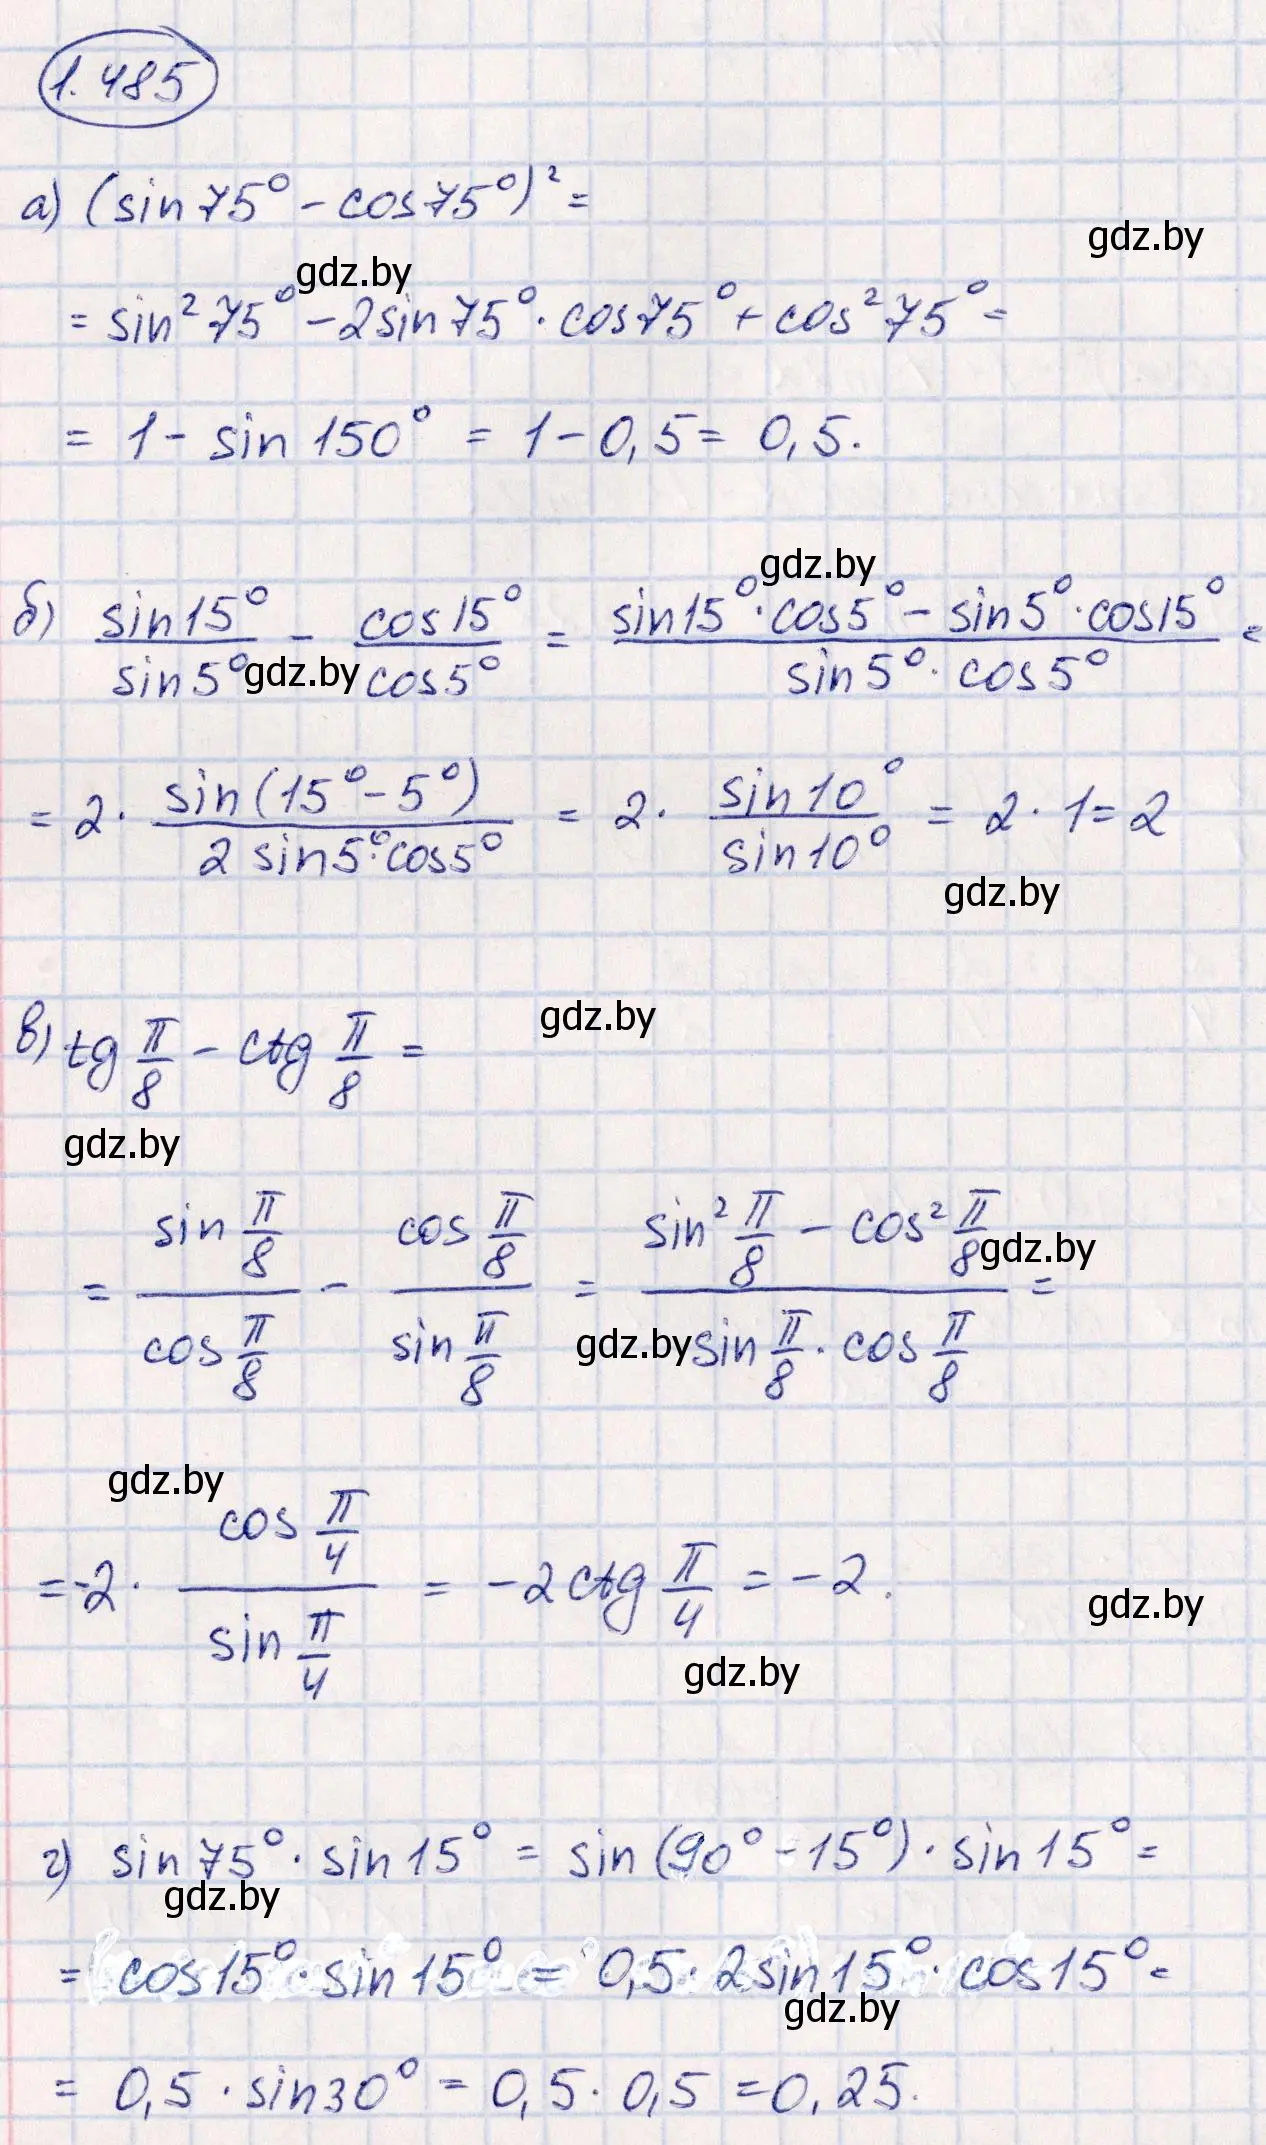 1.485
а) (sin 75° - cos 75°)² =
gdz.by
gdz.by
= sin² 75° - 2 sin 75° · cos 75° + cos² 75° =
= 1 - sin 150° = 1 - 0,5 = 0,5.
gdz.by
б) sin 15° / sin 5° - cos 15° / cos 5° = (sin 15° · cos 5° - sin 5° · cos 15°) / (sin 5° · cos 5°) =
gdz.by
= 2 · sin (15° - 5°) / (2 sin 5° · cos 5°) = 2 · sin 10° / sin 10° = 2 · 1 = 2
gdz.by
gdz.by
в) tg π/8 - ctg π/8 =
gdz.by
= sin π/8 / cos π/8 - cos π/8 / sin π/8 = (sin² π/8 - cos² π/8) / (sin π/8 · cos π/8) =
gdz.by
gdz.by
gdz.by
= -2 · cos π/4 / sin π/4 = -2 ctg π/4 = -2.
gdz.by
gdz.by
г) sin 75° · sin 15° = sin (90° - 15°) · sin 15° =
gdz.by
= cos 15° · sin 15° = 0,5 · 2 sin 15° · cos 15° =
gdz.by
= 0,5 · sin 30° = 0,5 · 0,5 = 0,25.